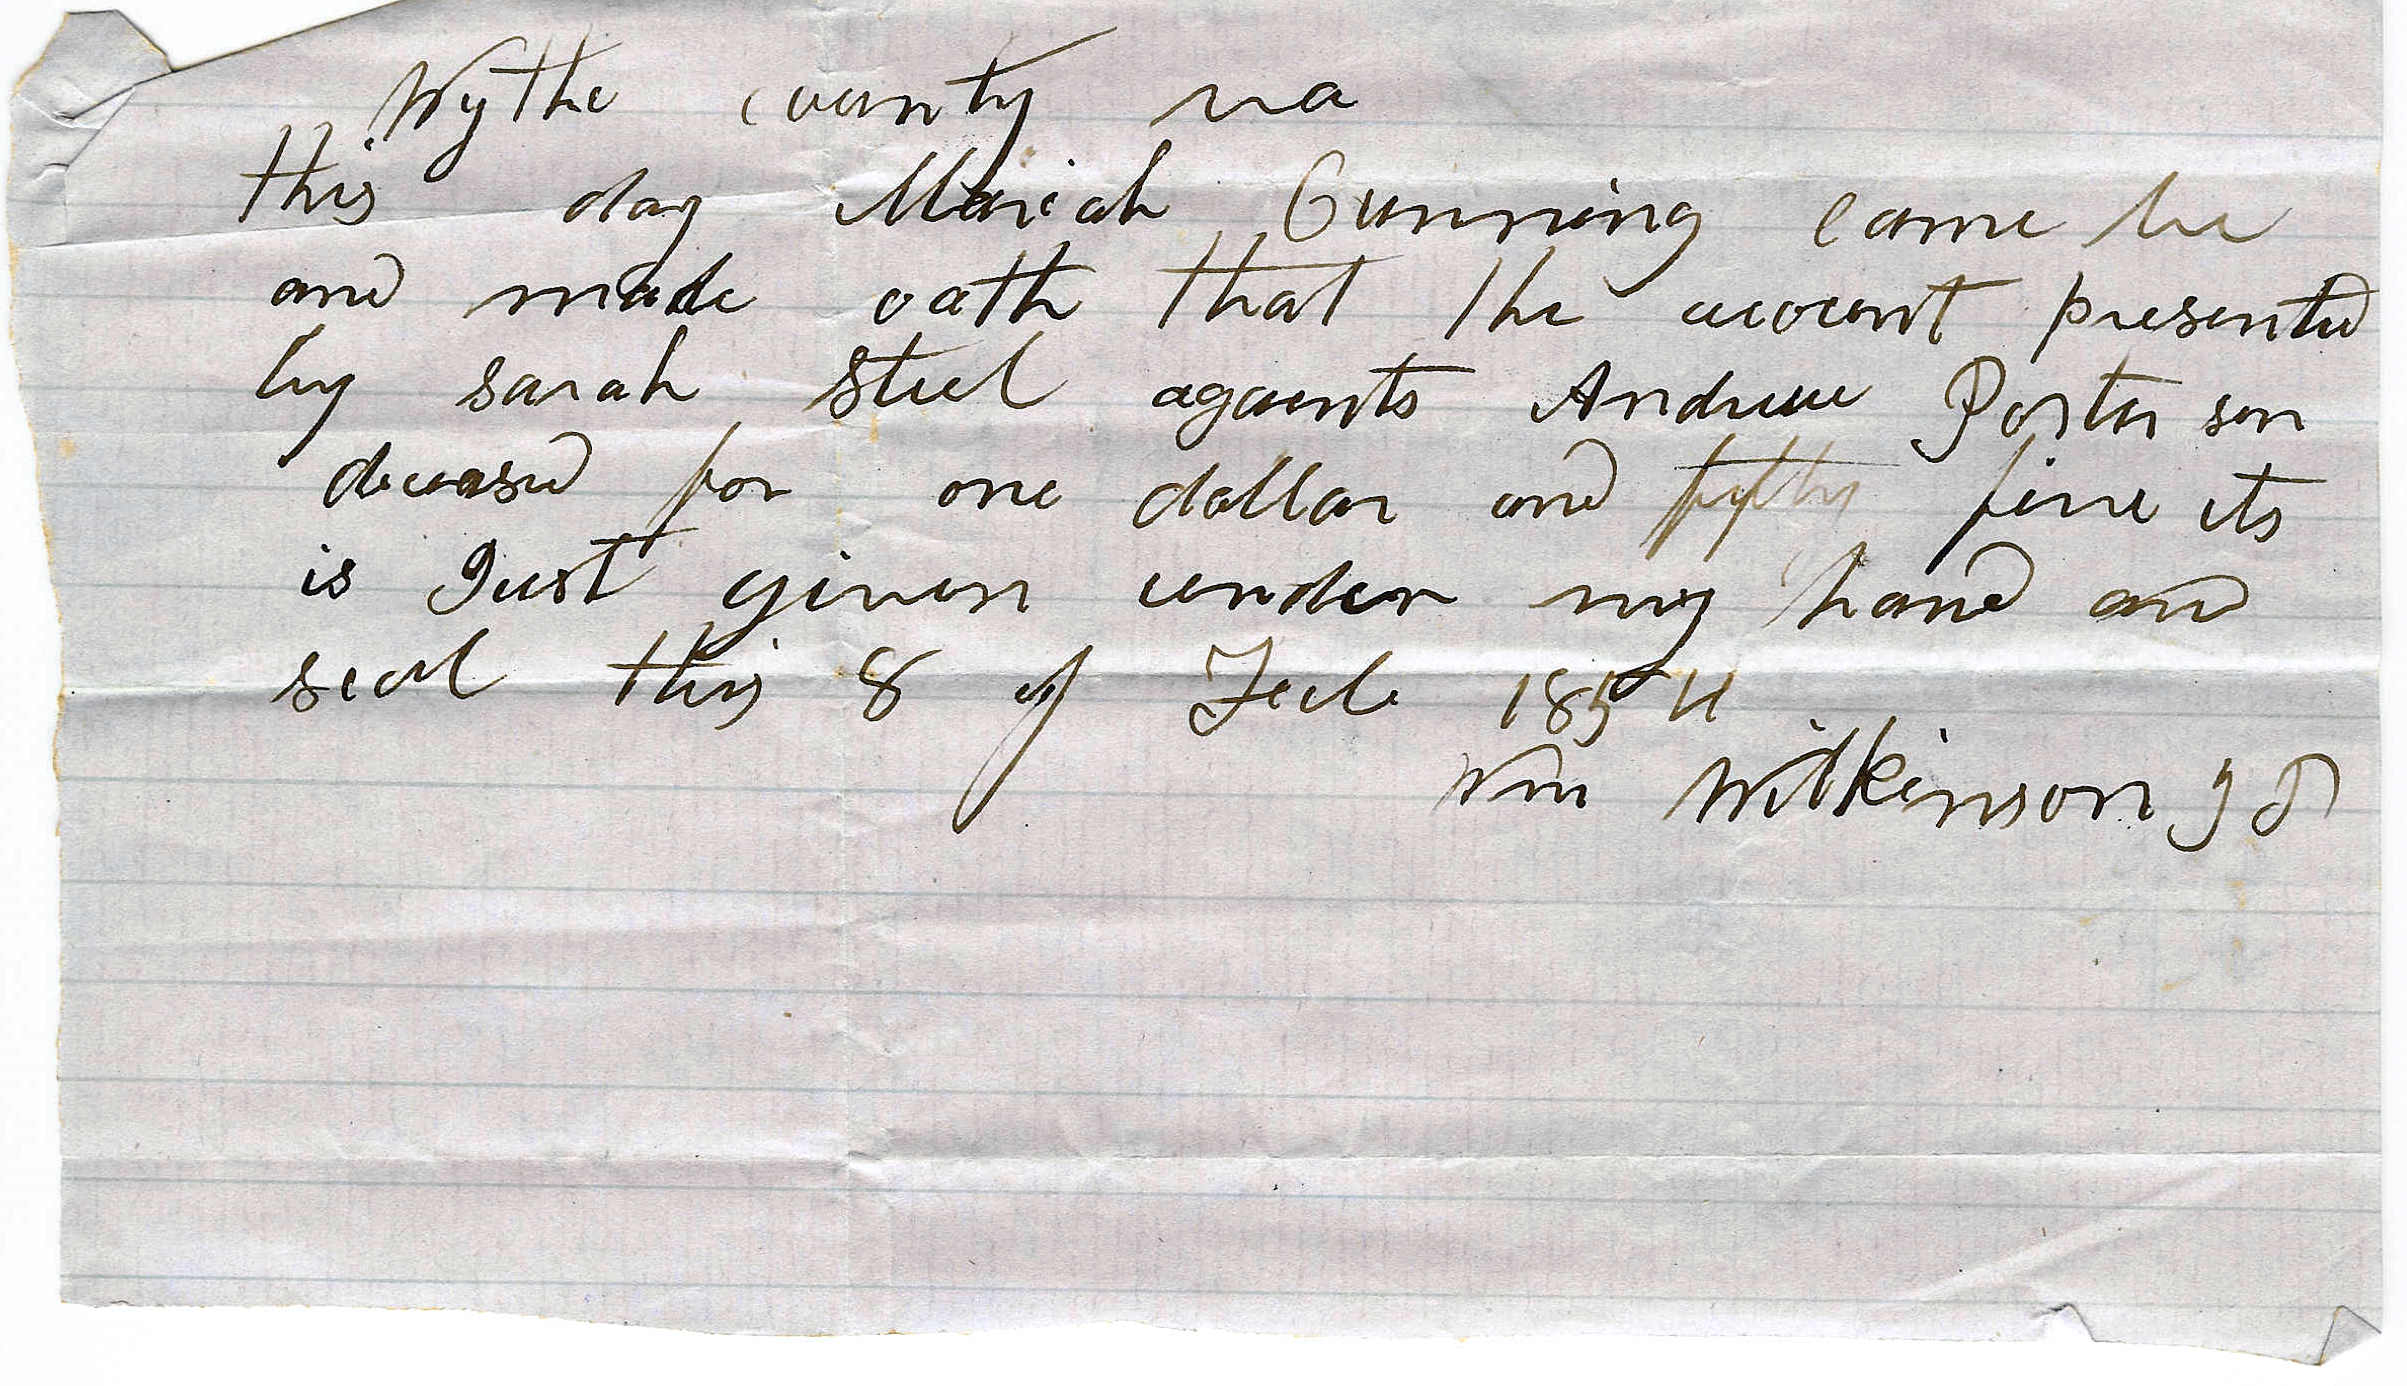 Wythe county va
this day Mariah Gunning came be
and made oath that the acount presented
by sarah Steel agaents Andrew Porter sen
deceased for one dollar and fifty five cts
is Just given under my hand and
seal this 8 of Feb 1854
Wm Wilkinson JP